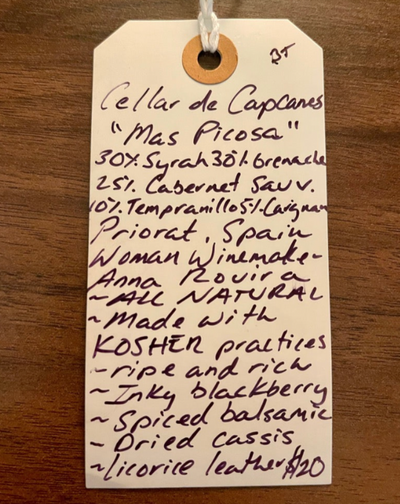 BT
Cellar de Capcanes
"Mas Picosa"
30% Syrah 30% Grenache
25% Cabernet Sauv.
10% Tempranillo 5% Carignan
Priorat, Spain
Woman Winemaker
Anna Rovira
~ALL NATURAL
~Made with
KOSHER practices
~ripe and rich
~Inky blackberry
~Spiced balsamic
~Dried cassis
~licorice leather $20